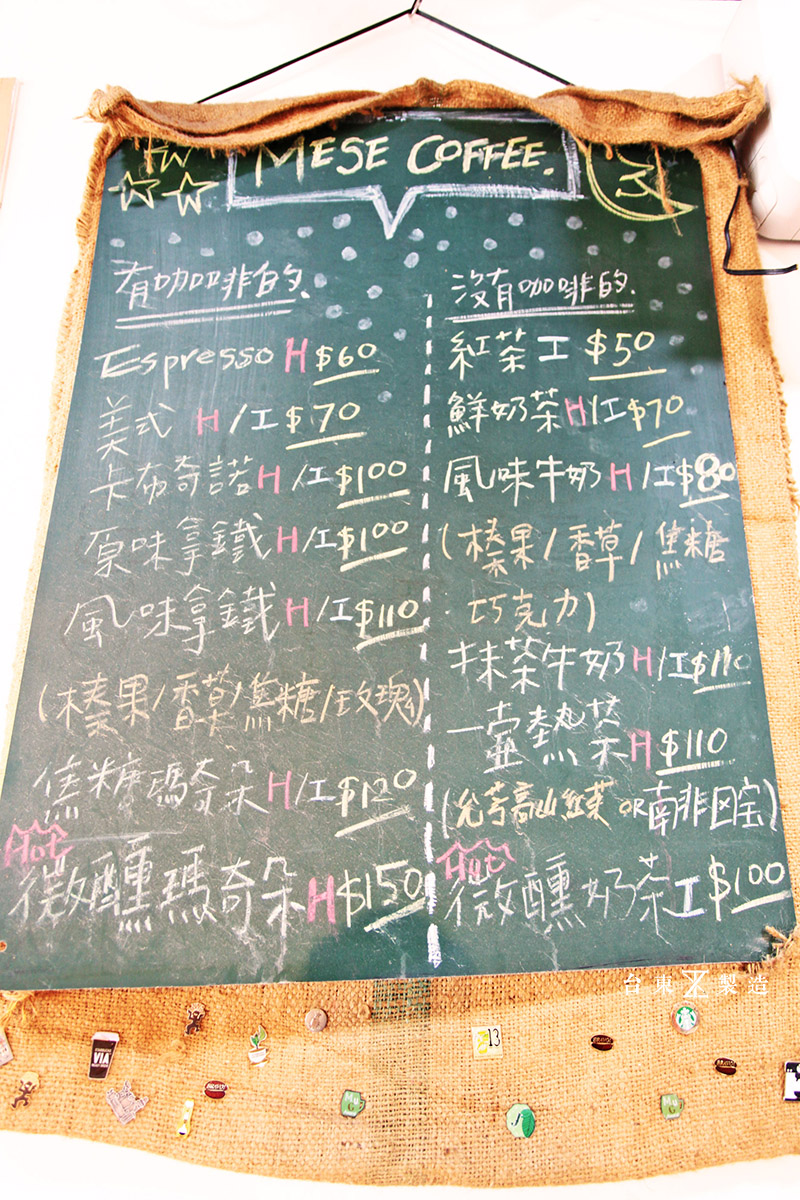 MESE COFFEE.
有咖啡的.
Espresso H $60
美式 H/I $70
卡布奇諾 H/I $100
原味拿鐵 H/I $100
風味拿鐵 H/I $110
(榛果/香草/焦糖/玫瑰)
焦糖瑪奇朵 H/I $120
Hot
微醺瑪奇朵 H $150
沒有咖啡的.
紅茶 I $50
鮮奶茶 H/I $70
風味牛奶 H/I $80
(榛果/香草/焦糖
巧克力)
抹茶牛奶 H/I $110
一壺熱茶 H $110
高山紅茶 OR 南非国宝)
Hot
微醺奶茶 I $100
台東製造
VIA
13